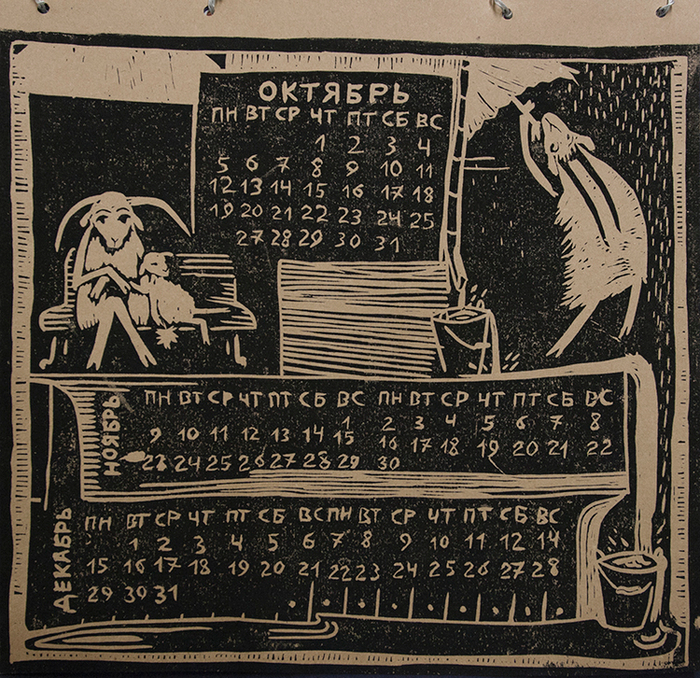 ОКТЯБРЬ
ПН ВТ СР ЧТ ПТ СБ ВС
1 2 3 4
5 6 7 8 9 10 11
12 13 14 15 16 17 18
19 20 21 22 23 24 25
27 28 29 30 31
НОЯБРЬ
ПН ВТ СР ЧТ ПТ СБ ВС ПН ВТ СР ЧТ ПТ СБ ВС
1 2 3 4 5 6 7 8
9 10 11 12 13 14 15 16 17 18 19 20 21 22
23 24 25 26 27 28 29 30
ДЕКАБРЬ
ПН ВТ СР ЧТ ПТ СБ ВС ПН ВТ СР ЧТ ПТ СБ ВС
1 2 3 4 5 6 7 8 9 10 11 12 14
15 16 17 18 19 20 21 22 23 24 25 26 27 28
29 30 31